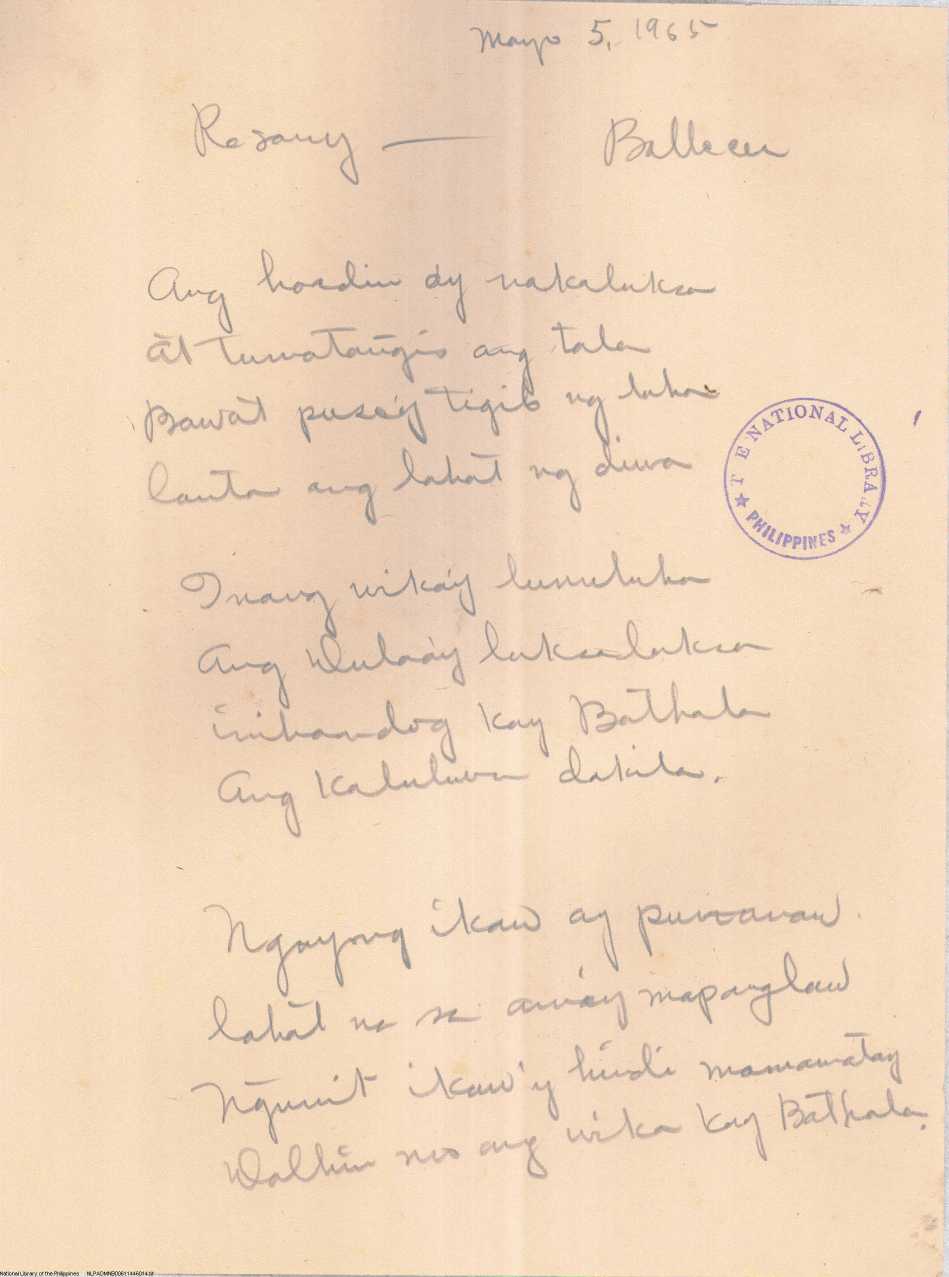 Mayo 5, 1965
Rosauy — Ballecer
Ang hardin ay nakaluksa
At tumatangis ang tala
Bawat puso'y tigib ng luha
lanta ang lahat ng diwa
Inang wika'y lumuluha
Ang Dula'y luksang luksa
inihandog kay Bathala
Ang kaluluwa dakila.
Ngayong ikaw ay pumanaw.
lahat na sa amin'y mapanglaw
Nĝunit ikaw'y hindi mamamatay
Dalhin mo ang wika kay Bathala.
THE NATIONAL LIBRARY
PHILIPPINES
National Library of the Philippines